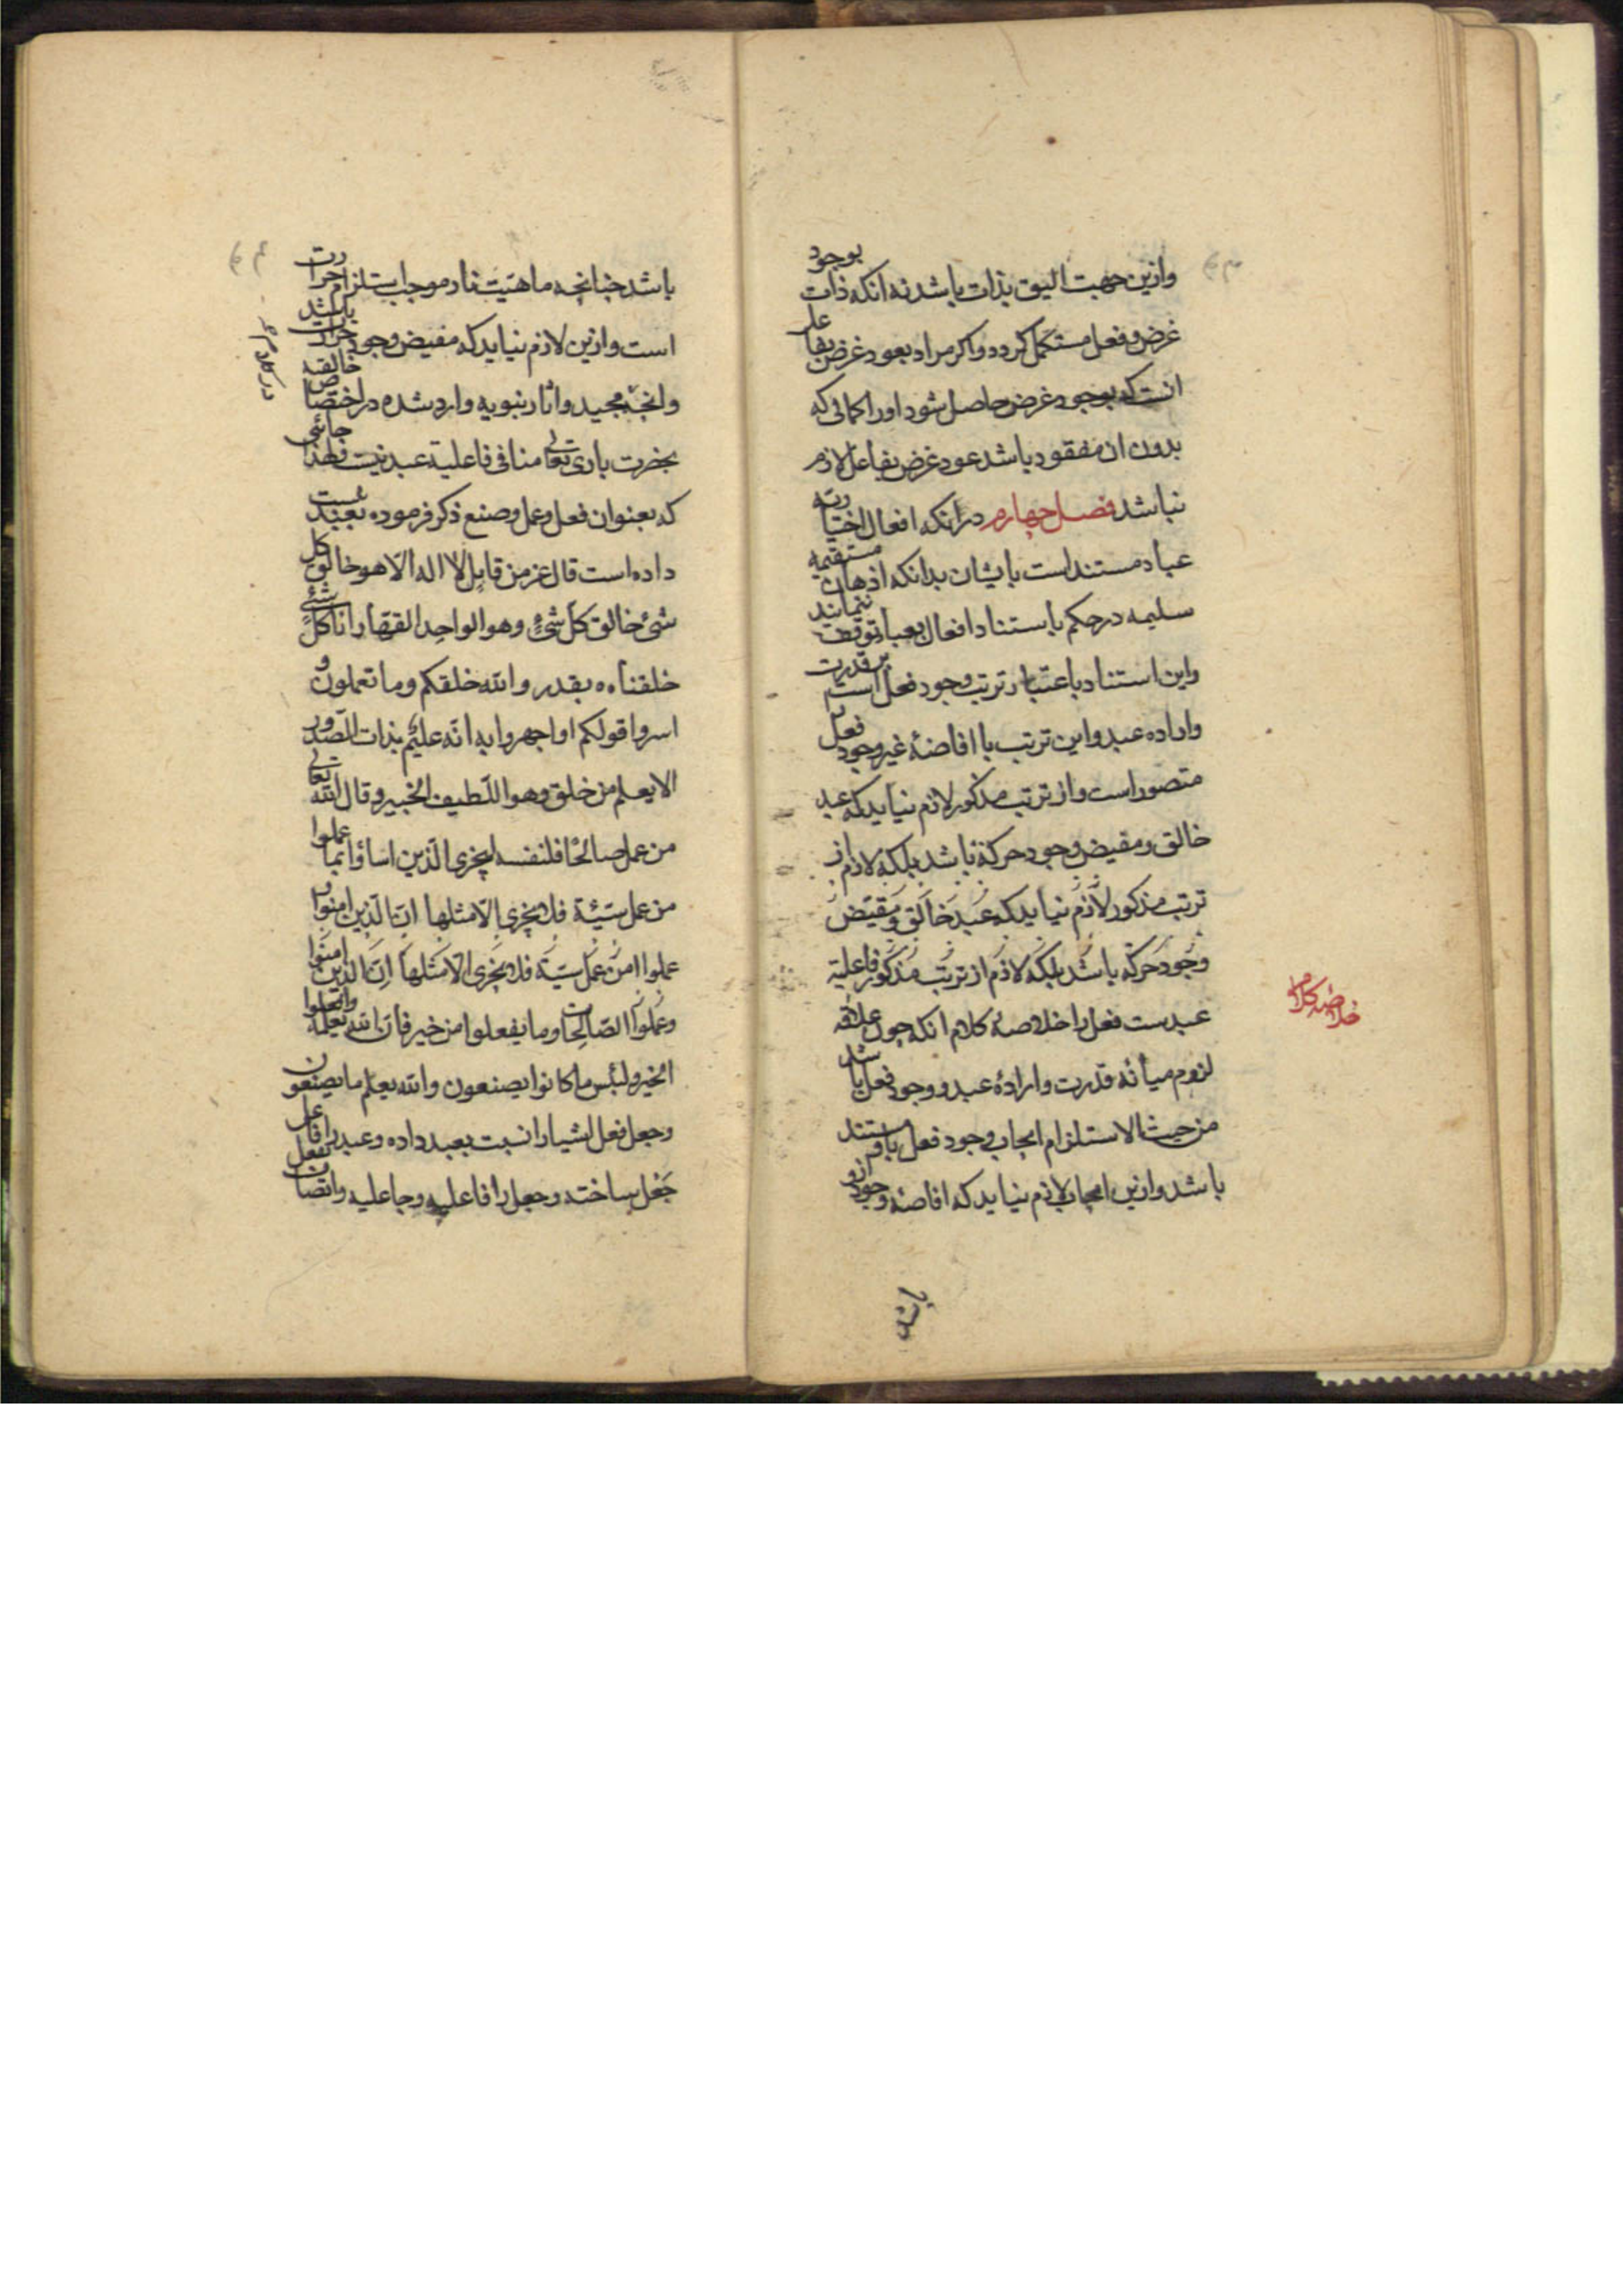 وازین جهت الیق بذات باشد نه انکه ذات بوجود
غرض و فعل مستکمل کردد واکر مراد بعود غرض بفاعل
انست که بوجود غرض حاصل شود او را کمالی که
بدون ان مفقود باشد عود غرض بفاعل لازم
نباشد فصل چهارم در انکه افعال اختیاریه
عباد مستند است بایشان بدانکه اذهان مستقیمه
سلیمه در حکم باستناد افعال بعباد توقف ننمایند
واین استناد باعتبار ترتب وجود فعل است بر قدرت
واراده عبد واین ترتب با افاضهٔ غیر وجود فعل
متصور است و از ترتب مذکور لازم نیاید که عبد
خالق و مفیض وجود حرکة باشد بلکه لازم از
ترتب مذکور لازم نیاید که عبد خالق و مفیض
وجود حرکة باشد بلکه لازم از ترتب مذکور فاعلیة
عبدست فعل را خلاصهٔ کلام انکه چون علاقه
لزوم میانهٔ قدرت و ارادهٔ عبد و وجود فعل باشد
من حیث الاستلزام ایجاب وجود فعل باو مستند
باشد وازین ایجاب لازم نیاید که افاضهٔ وجود ازو
خلاصه کلام
باشد
باشد چنانچه ماهیت نار موجب استلزام حرارت
است وازین لازم نیاید که مفیض وجود حرارت باشد
وانچه مجید واثار نبویه وارد شده در اختصاص خالقیه
بحضرت باری تعالی منافی فاعلیة عبد نیست فلهذا جائی
که بعنوان فعل و عمل و صنع ذکر فرموده بعبد نسبت
داده است قال عز من قایل لا اله الا هو خالق کل
شیء خالق کل شیء وهو الواحد القهار انا کل شیء
خلقناه بقدر والله خلقکم وما تعملون و
اسروا قولکم او اجهروا به انه علیم بذات الصدور
الا یعلم من خلق وهو اللطیف الخبیر و قال الله تعالی
من عمل صالحا فلنفسه لیجزی الذین اساؤا بما عملوا
من عمل سیئة فلا یجزی الا مثلها ان الذین امنوا و
عملوا امن عمل سیئة فلا یجزی الا مثلها ان الذین امنوا
وعملوا الصالحات وما یفعلوا من خیر فان الله یعلمه وافعلوا
الخیر ولبئس ما کانوا یصنعون والله یعلم ما یصنعون
وجعل فعل اشیا را نسبت بعبد داده وعبد را فاعل
جعل ساخته وجعل را فاعلیه وجاعلیه واتصاف بفعل